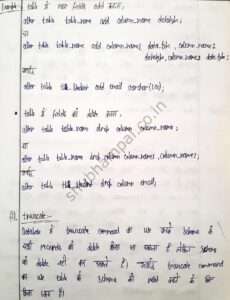 Example - table में नया fields add करना,
alter table table_name add column_name datatype;
या
alter table table_name add column_name1 data_type, column_name2
datatype, column_name3 data type;
alter table add email varchar(100);
table से fields को delete करना,
alter table table_name drop column column_name;
या
alter table table_name drop column column_name1, column_name2;
alter table drop column email;
truncate -
database में truncate command का use करके
सभी records को delete किया जा सकता है लेकिन
को delete नहीं कर सकते है। truncate command
का use table के को नहीं करने के लिए
किया जाता है।
shubhampal.co.in